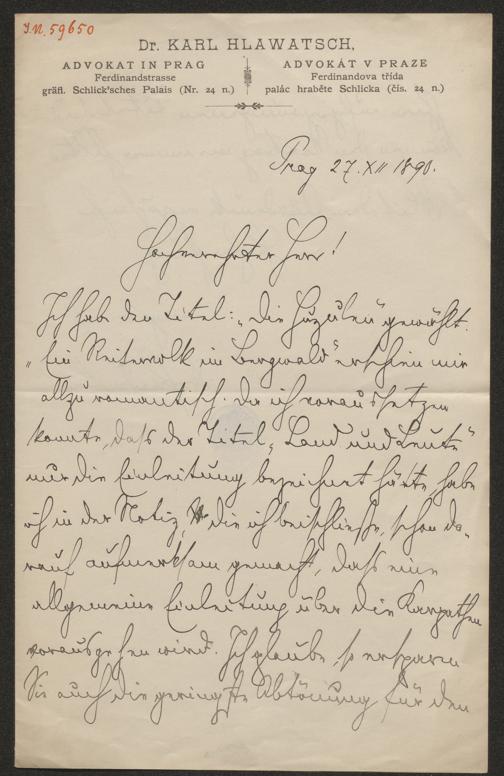 J.N. 59650
Dr. KARL HLAWATSCH,
ADVOKAT IN PRAG
Ferdinandstrasse
gräfl. Schlick'sches Palais (Nr. 24 n.)
ADVOKÁT V PRAZE
Ferdinandova třída
palác hraběte Schlicka (čís. 24 n.)
Prag 27. XII 1890.
Hochverehrter Herr!
Ich habe den Titel: „Die Huzulen" gewählt.
„Ein Reitervolk im Bergwald" erschien mir
allzu romantisch. Da ich voraussetzen
konnte, daſs der Titel „Land und Leute"
nur die Einleitung bezeichnet hätte, habe
ich in der Notiz, die ich beischließe, schon da-
rauf aufmerksam gemacht, daſs eine
allgemeine Einleitung über die Karpathen
vorausgehen wird. Ich glaube, so ersparen
Sie auch die geringste Abtönung für den